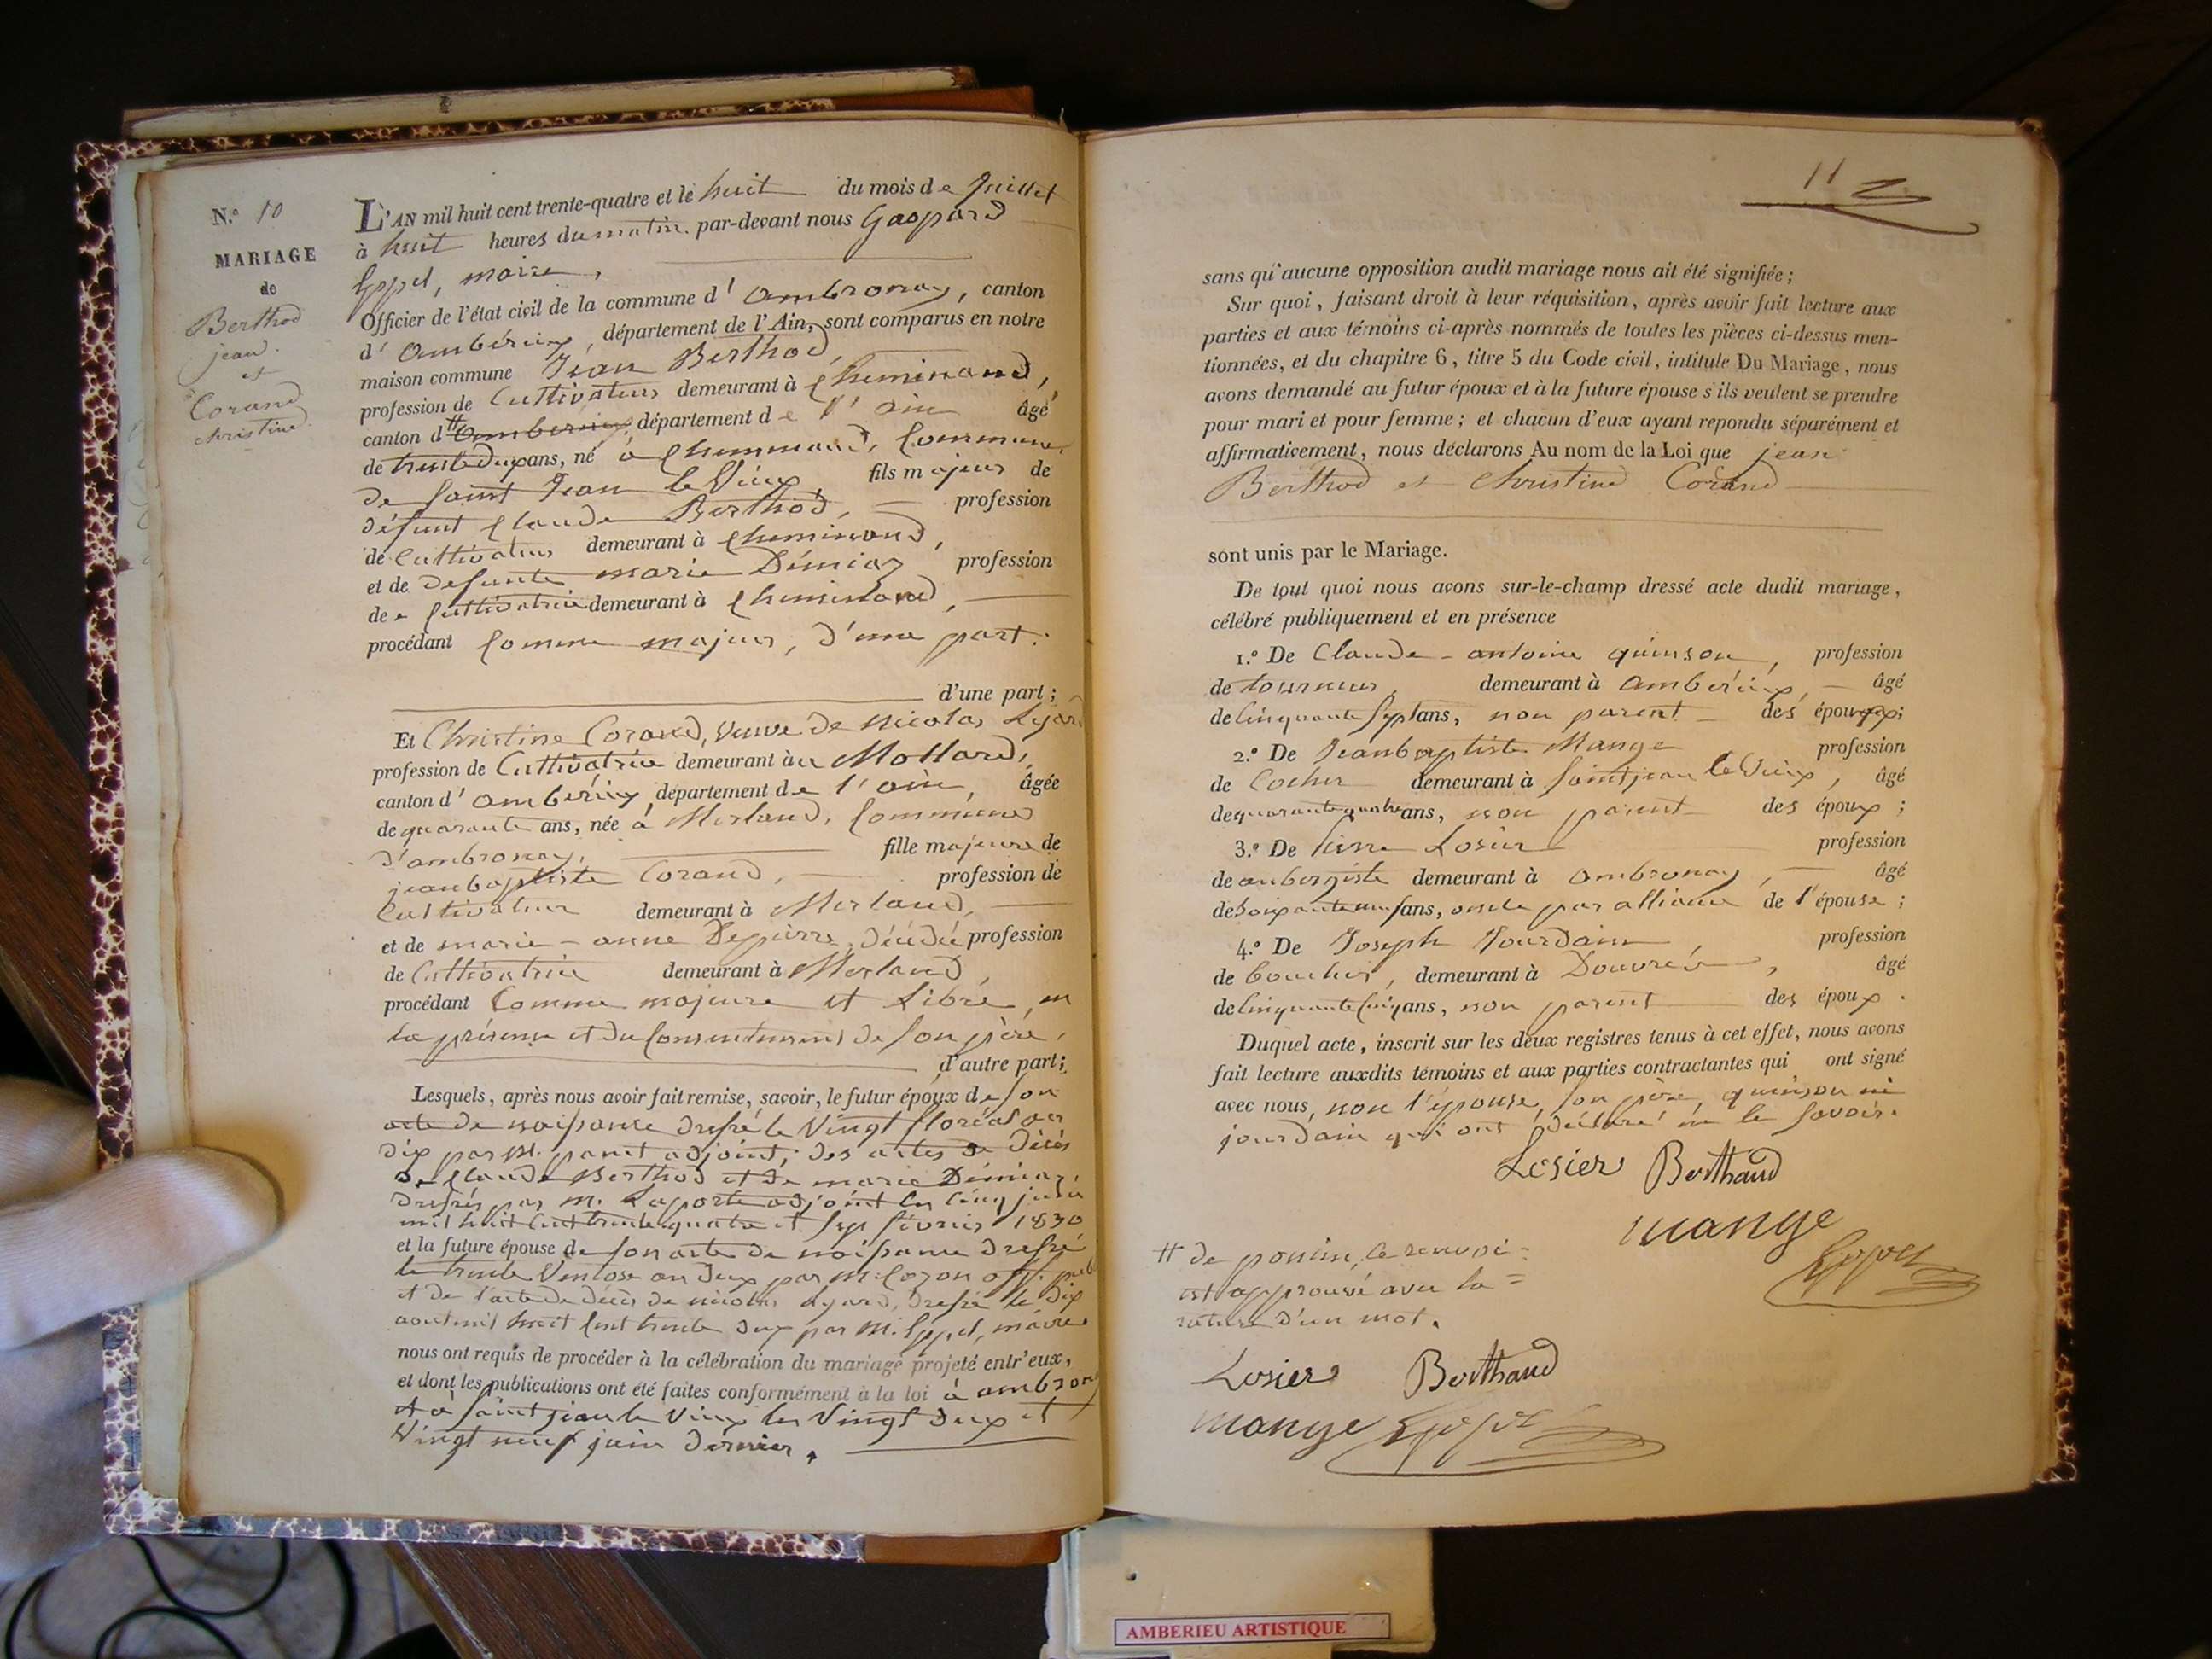 N.º 10
MARIAGE
de
Berthod
jean
et
Corand
christine.
L'AN mil huit cent trente-quatre et le huit du mois de juillet
à huit heures du matin par-devant nous Gaspard
Eppel, maire,
Officier de l'état civil de la commune d'ambronay, canton
d'ambérieux, département de l'Ain, sont comparus en notre
maison commune Jean Berthod,
profession de Cultivateur demeurant à Cheminand,
canton d # ambérieux département de l'ain âgé
de trente deux ans, né à Cheminand, Commune
de Saint Jean le Vieux, fils majeur de
défunt Claude Berthod, profession
de Cultivateur demeurant à Cheminand,
et de défunte marie Démiaz profession
de Cultivatrice demeurant à Cheminand,
procédant Comme majeur, d'une part.
d'une part;
Et Christine Corand, Veuve de Nicolas Lyard
profession de Cultivatrice demeurant au Mollard,
canton d'ambérieux département de l'ain, âgée
de quarante ans, née à Merland, Commune
d'ambronay, fille majeure de
jean baptiste Corand, profession de
Cultivateur demeurant à Merland,
et de marie-anne Depierre, décédée profession
de Cultivatrice demeurant à Merland,
procédant Comme majeure et Libre, en
la présence et du Consentement de Son père,
d'autre part;
Lesquels, après nous avoir fait remise, savoir, le futur époux de Son
acte de naissance dressé le Vingt floréal an
dix par M. panet adjoint; des actes de décès
de Claude Berthod et de marie Démiaz,
dressés par m. Laporte adjoint les Cinq juin
mil huit Cent trente quatre et Sept février 1830
et la future épouse de Son acte de naissance dressé
le trente Ventose an deux par M. Cozon off. pub
et de l'acte de décès de nicolas Lyard, dressé le dix
aout mil huit Cent trente deux par M. Eppel, maire
nous ont requis de procéder à la célébration du mariage projeté entr'eux,
et dont les publications ont été faites conformément à la loi à ambronay
et à Saint jean le Vieux les Vingt deux et
Vingt neuf juin dernier.
11
sans qu'aucune opposition audit mariage nous ait été signifiée;
Sur quoi, faisant droit à leur réquisition, après avoir fait lecture aux
parties et aux témoins ci-après nommés de toutes les pièces ci-dessus men-
tionnées, et du chapitre 6, titre 5 du Code civil, intitulé Du Mariage, nous
avons demandé au futur époux et à la future épouse s'ils veulent se prendre
pour mari et pour femme; et chacun d'eux ayant repondu séparément et
affirmativement, nous déclarons Au nom de la Loi que jean
Berthod et Christine Corand
sont unis par le Mariage.
De tout quoi nous avons sur-le-champ dressé acte dudit mariage,
célébré publiquement et en présence
1.º De Claude-antoine quinson, profession
de tourneur, demeurant à ambérieux, âgé
de Cinquante Sept ans, non parent des époux;
2.º De Jean baptiste Mange profession
de Cocher demeurant à Saint jean le Vieux, âgé
de quarante quatre ans, non parent des époux;
3.º De Pierre Losier profession
de aubergiste demeurant à ambronay, âgé
de Soixante neuf ans, oncle par alliance de l'épouse;
4.º De Joseph Jourdain, profession
de boucher, demeurant à Douvres, âgé
de Cinquante Cinq ans, non parent des époux.
Duquel acte, inscrit sur les deux registres tenus à cet effet, nous avons
fait lecture auxdits témoins et aux parties contractantes qui ont signé
avec nous, non l'épouse, Son père, quinson ni
jourdain qui ont déclaré ne le Savoir.
Losier Berthaud
Mange
Eppel
# de poncin, le renvoi
est approuvé avec la
rature d'un mot.
Losier Berthaud
Mange Eppel
AMBERIEU ARTISTIQUE